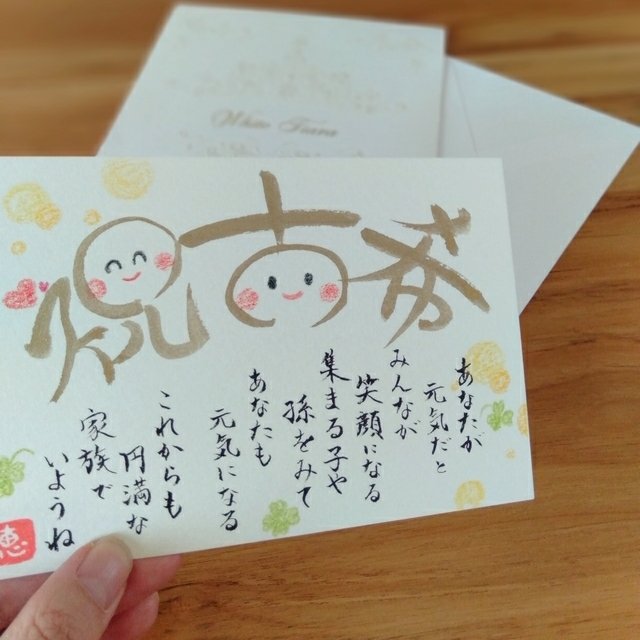 祝 古希
あなたが
元気だと
みんなが
笑顔になる
集まる子や
孫をみて
あなたも
元気になる
これからも
円満な
家族で
いようね
恵
White Tiara